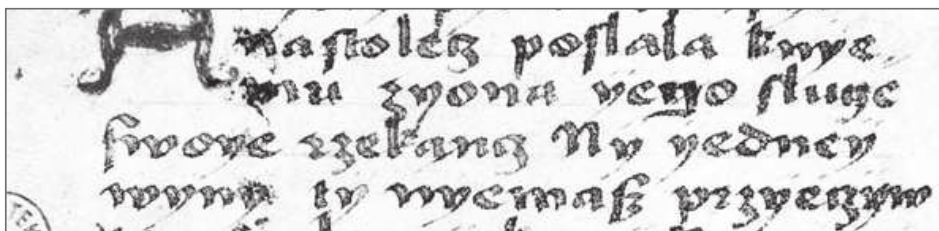 A naſtolecz poſlala knye
mu zyona yego ſluge
ſwoye rzekancz Ny yedney
wyny ty nyemaſz przyeczyw
TEK